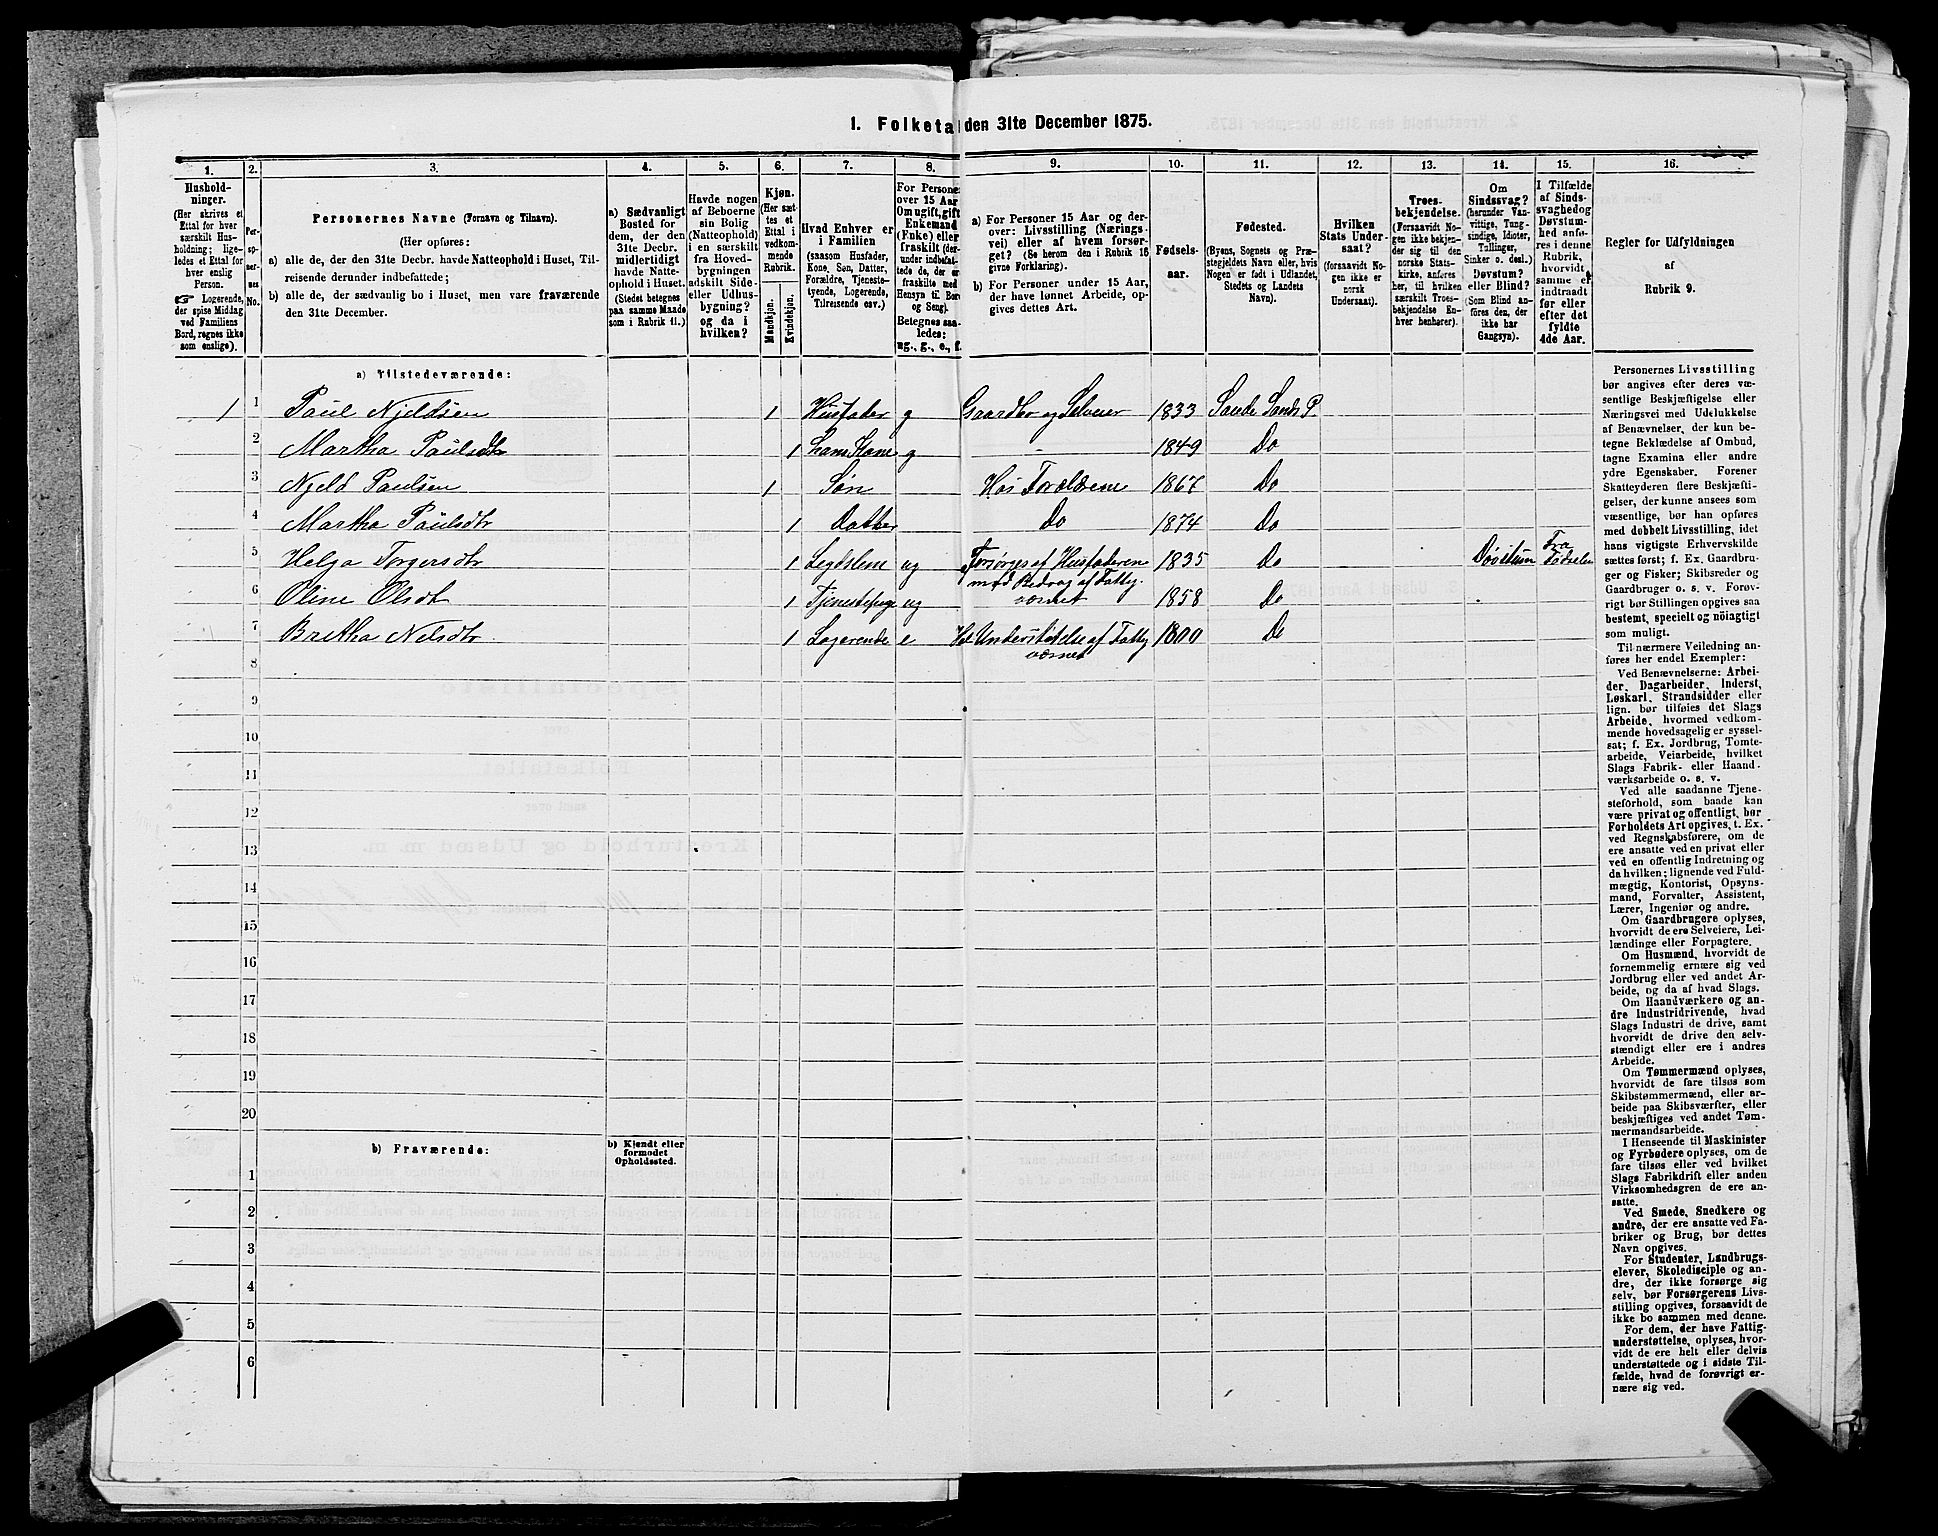 1. Folketal den 31te December 1875.
1. 2. 3. 4. 5. 6. 7. 8. 9. 10. 11. 12. 13. 14. 15. 16.
Hushold-
ninger.
(Her skrives et
Ettal for hver
særskilt Hus-
holdning; lige-
ledes et Ettal for
hver enslig
Person.
☞ Logerende,
der spise Middag
ved Familiens
Bord, regnes ikke
som enslige).
Per-
so-
ner-
nes
No.
Personernes Navne (Fornavn og Tilnavn).
(Her opføres:
a) alle de, der den 31te Decbr. havde Natteophold i Huset, Til-
reisende derunder indbefattede;
b) alle de, der sædvanlig bo i Huset, men vare fraværende
den 31te December.
a) Sædvanligt
Bosted for
dem, der den
31te Decbr.
midlertidigt
havde Natte-
ophold i Huset.
(Stedet betegnes
paa samme Maade
som i Rubrik 11.)
Havde nogen
af Beboerne
sin Bolig
(Natteophold)
i en særskilt
fra Hoved-
bygningen
adskilt Side-
eller Udhus-
bygning?
og da i
hvilken?
Kjøn.
(Her sæt-
tes et
Ettal i
vedkom-
mende
Rubrik.
Mandkjøn.
Kvindekjøn.
Hvad Enhver er
i Familien
(saasom Husfader,
Kone, Søn, Datter,
Forældre, Tjeneste-
tyende, Logerende,
Tilreisende osv.)
For Personer
over 15 Aar
Om ugift, gift
Enkemand
(Enke) eller
fraskilt (der-
under indbefat-
tede de, der er
fraskilte med
Hensyn til Bord
og Seng).
Betegnes saa-
ledes:
ug., g., e., f.
a) For Personer 15 Aar og der-
over: Livsstilling (Nærings-
vei) eller af hvem forsør-
get? (Se herom den i Rubrik 16
givne Forklaring).
b) For Personer under 15 Aar,
der have lønnet Arbeide, op-
gives dettes Art.
Fødsels-
aar.
Fødested.
(Byens, Sognets og Præ-
stegjeldets Navn eller, hvis
Nogen er født i Udlandet,
Stedets og Landets
Navn).
Hvilken
Stats Under-
saat?
(forsaavidt No-
gen ikke er
norsk
Undersaat).
Troes-
bekjendelse.
(Forsaavidt No-
gen ikke bekjen-
der sig til den
norske Stats-
kirke, anføres
her, til hvilken
særskilt Troes-
bekjendelse En-
hver henhører).
Om
Sindssvag?
(herunder Van-
vittige, Tung-
sindige, Idioter,
Tullinger,
Sinker o. desl.)
Døvstum?
eller Blind?
(Som Blind an-
føres den, der
ikke har
Gangsyn).
I Tilfælde
af Sinds-
svaghed og
Døvstum-
hed anfø-
res i denne
Rubrik,
hvorvidt
samme er
indtraadt
før eller
efter det
fyldte
4de Aar.
Regler for Udfyldningen
af
Rubrik 9.
a) Tilstedeværende:
1 1 Paul Njeldsen 1 Husfader g Gaardbr og Selveier 1833 Sande Sands P.
2 Martha Paulsdtr 1 hans Kone g - 1849 Do
3 Njeld Paulsen 1 Søn Hos Forældrene 1867 Do
4 Martha Paulsdtr 1 Datter Do 1874 Do
5 Helga Torgersdtr 1 Legdslem ug Forsørges af Husfaderen 1835 Do Døvstum Fra Fødselen
med Bidrag af Fattig-
6 Oline Olsdt 1 Tjenestepige ug væsnet 1858 Do
7 Bretha Nelsdtr 1 Logerende e Hel Understøttelse af Fattig 1800 Do
væsnet
8
9
10
11
12
13
14
15
16
17
18
19
20
b) Fraværende:
b) Kjendt eller
formodet
Opholdssted.
1
2
3
4
5
6
Personernes Livsstilling
bør angives efter deres væ-
sentlige Beskjæftigelse eller
Næringsvei med Udelukkelse
af Benævnelser, der kun be-
tegne Beklædelse af Ombud,
tagne Examina eller andre
ydre Egenskaber. Forener
Skatteyderen flere Beskjæfti-
gelser, der kunne ansees som
væsentlige, bør han opføres
med dobbelt Livsstilling, idet
hans vigtigste Erhvervskilde
sættes først; f. Ex. Gaardbru-
ger og Fisker; Skibsreder og
Gaardbruger o. s. v. Forøv-
rigt bør Stillingen opgives saa
bestemt, specielt og nöiagtigt
som muligt.
Til nærmere Veiledning an-
føres her endel Exempler:
Ved Benævnelserne: Arbei-
der, Dagarbeider, Inderst,
Løskarl, Strandsidder eller
lign. bør tilføies det Slags
Arbeide, hvormed vedkom-
mende hovedsagelig er syssel-
sat; f. Ex. Jordbrug, Tomte-
arbeide, Veiarbeide, hvilket
Slags Fabrik- eller Haand-
værksarbeide o. s. v.
Ved alle saadanne Tjene-
steforhold, som baade kan
være privat og offentligt, bør
Forholdets Art opgives, t. Ex.
ved Regnskabsførere, om de
ere ansatte ved en privat eller
ved en offentlig Indretning og
da hvilken; lignende ved Fuld-
mægtig, Kontorist, Opsyns-
mand, Forvalter, Assistent,
Lærer, Ingeniør og andre.
Om Gaardbrugere oplyses,
hvorvidt de ere Selveiere, Lei-
lændinge eller Forpagtere.
Om Husmænd, hvorvidt de
fornemmelig ernære sig ved
Jordbrug eller ved andet Ar-
beide, og da af hvad Slags.
Om Haandværkere og an-
dre Industridrivende, hvad
Slags Industri de drive, samt
hvorvidt de drive den selv-
stændigt eller ere i andres
Arbeide.
Om Tømmermænd oplyses,
hvorvidt de fare tilsøs som
Skibstømmermænd, eller ar-
beide paa Skibsværfter, eller
beskjæftiges ved andet Tøm-
mermandsarbeide.
I Henseende til Maskinister
og Fyrbødere oplyses, om de
fare tilsøs eller ved hvilket
Slags Fabrikdrift eller anden
Virksomhedsgren de ere an-
satte.
Ved Smede, Snedkere og
andre, der ere ansatte ved Fa-
briker og Brug, bør dettes
Navn opgives.
For Studenter, Landbrugs-
elever, Skoledisciple og an-
dre, der ikke forsørge sig
selv, bør Forsørgerens Livs-
stilling opgives, forsaavidt de
ikke bo sammen med denne.
For dem, der have Fattig-
understøttelse, oplyses, hvor-
vidt de ere helt eller delvis
understøttede og i sidste Til-
fælde, hvad de forøvrigt er-
nære sig ved.